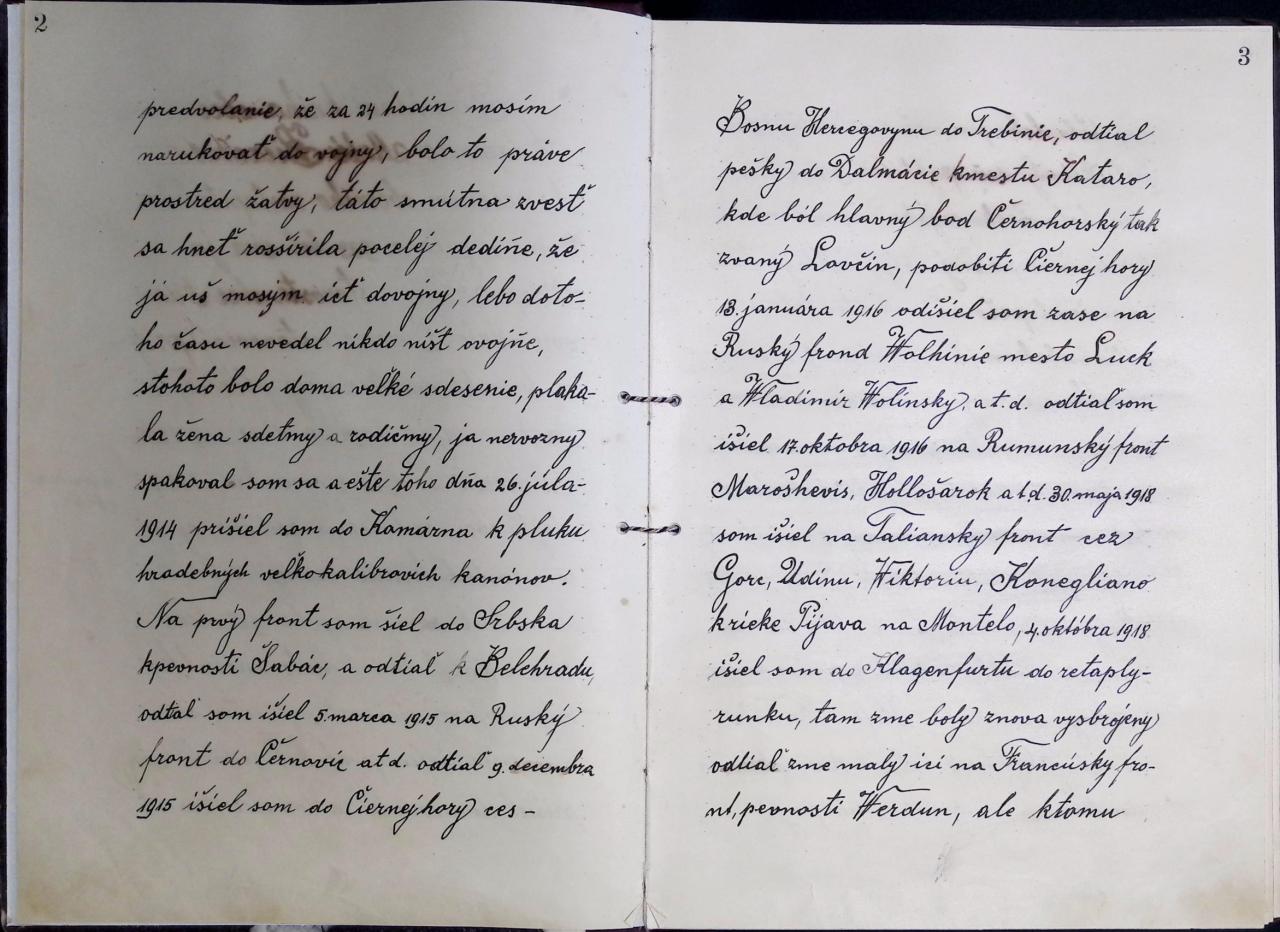 2
predvolanie, že za 24 hodín mosím
narukovať do vojny, bolo to práve
prostred žatvy, táto smútna zvesť
sa hneť rosšírila pocelej dedíňe, že
já uš mosým ícť dovojny, lebo doto-
ho času nevedel nikdo níšť ovojňe,
stohoto bolo doma veľké sdesenie, plaka-
la žena sdetmy a rodičmy, ja nervozny
spakoval som sa a ešte toho dňa 26. júla-
1914 prišiel som do Komarna k pluku
hradebných veľkokalibrovich kanónov.
Na prvý front som šiel do Srbska
kpevnosti Šabác, a odtiaľ k Belehradu,
odtal som išiel 5. marca 1915 na Ruský
front do Černovic atd. odtiaľ 9. decembra
1915 išiel som do Čiernejhory ces-
3
Bosnu Hercegovynu do Trebinie, odtial
pešky do Dalmácie kmestu Kataro,
kde ból hlavný bod Černohorský tak
zvaný Lovčin, podobiti Čiernej hory
13. januára 1916 odišiel som zase na
Ruský frond Wolhinie mesto Luck
a Wladimir Wolinsky, a t. d. odtiaľ som
išiel 17. oktobra 1916 na Rumunský front
Marošhevis, Hollošarok a t. d. 30. maja 1918
som išiel na Taliansky front cez
Gorc, Udinu, Wiktoriu, Konegliano
kricke Pijava na Montelo, 4. októbra 1918
išiel som do Klagenfurtu do retaply-
runku, tam zme boly znova vyzbrojeny
odtiaľ zme maly ici na Francúsky fro-
nt, pevnosti Werdun, ale ktomu